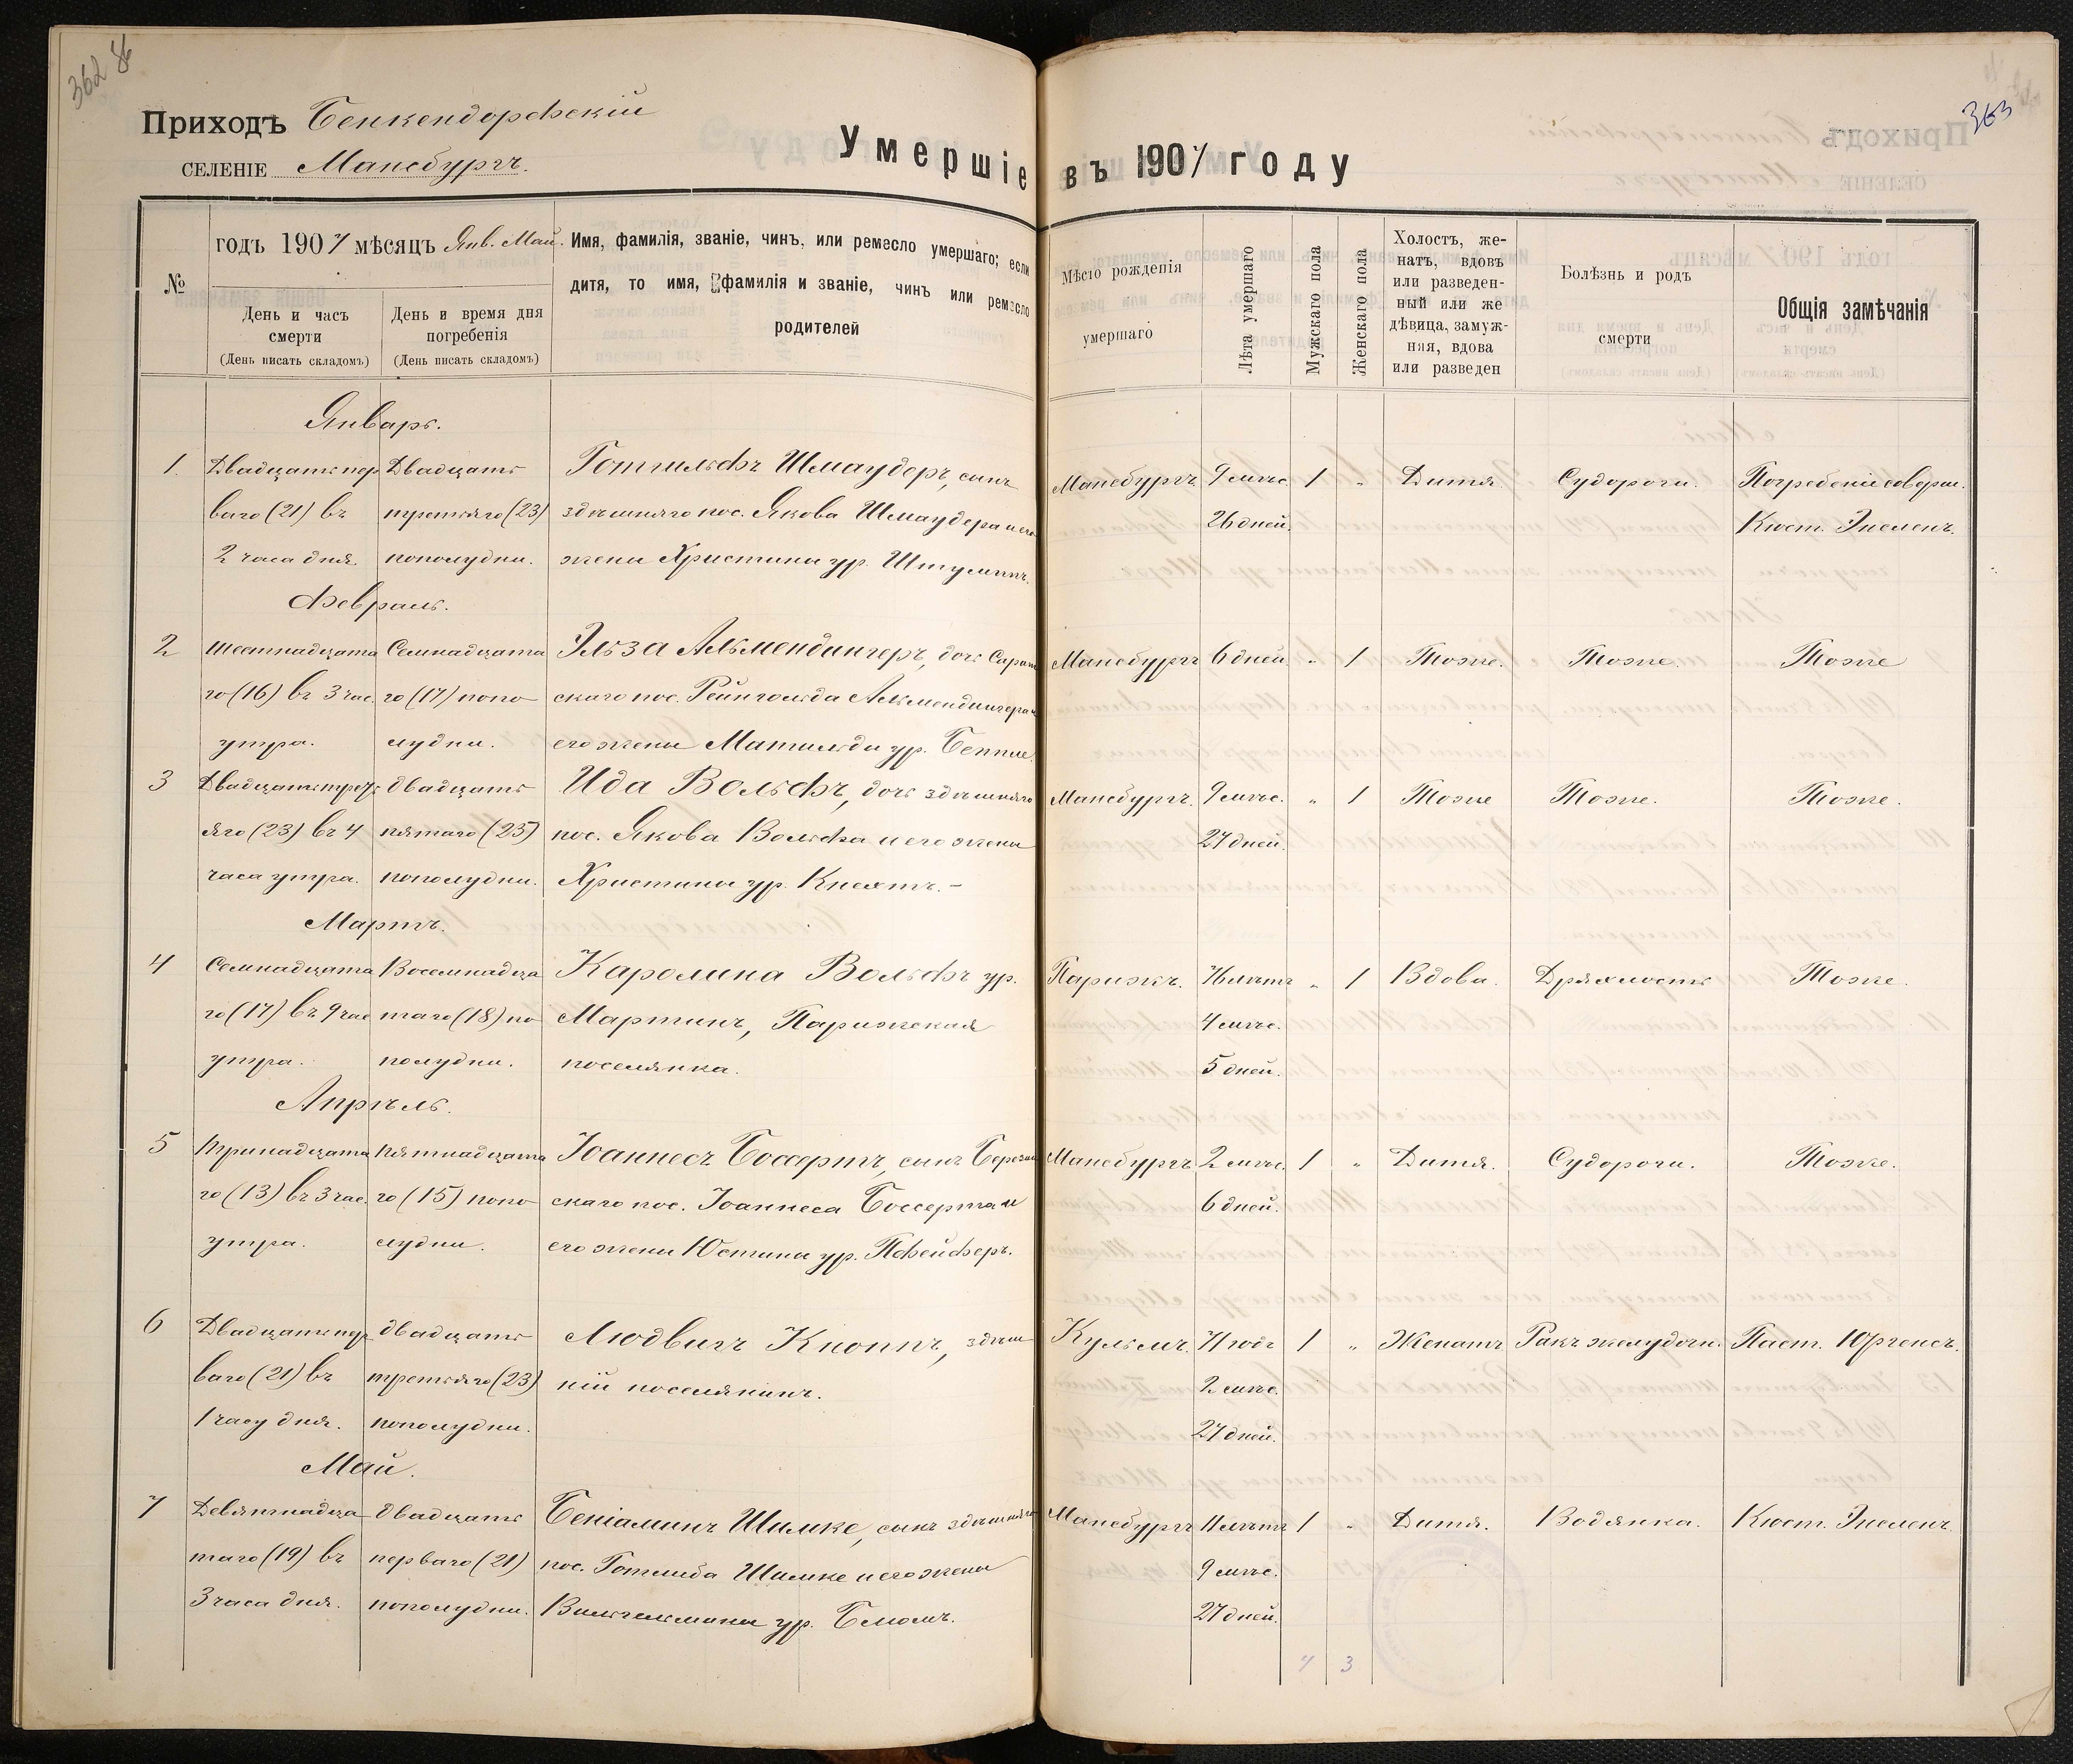 362 86
363
Приходъ Бенкендорфскій
СЕЛЕНІЕ Мансбургъ.
Умершіе въ 1907 году
№
годъ 1907 мѣсяцъ Янв. Май.
День и часъ
смерти
(День писать складомъ)
День и время дня
погребенія
(День писать складомъ)
Имя, фамилія, званіе, чинъ, или ремесло умершаго; если
дитя, то имя, фамилія и званіе, чинъ или ремесло
родителей
Мѣсто рожденія
умершаго
Лѣта умершаго
Мужскаго пола
Женскаго пола
Холостъ, же-
натъ, вдовъ
или разведен-
ный или же
дѣвица, замуж-
няя, вдова
или разведен
Болѣзнь и родъ
смерти
Общія замѣчанія
Январь.
1. Двадцать пер Двадцать Готтильфъ Шмаудеръ, сынъ Мансбургъ. 9 мѣс. 1 „ Дитя. Судороги. Погребеніе соверш.
ваго (21) въ третьяго (23) здѣшняго пос. Якова Шмаудера и его 26 дней. Кюст. Энсленъ.
2 часа дня. пополудни. жены Христины ур. Штумпъ.
Февраль.
2 Шестнадцата Семнадцата Эльза Альмендингеръ, дочь Сарат Мансбургъ 6 дней „ 1 Тоже. Тоже. Тоже
го (16) въ 3 час. го (17) попо скаго пос. Рейнгольда Альмендингера и
утра. лудни. его жены Матильды ур. Беппле.
3 Двадцать треть двадцать Ида Вольфъ, дочь здѣшняго Мансбургъ. 9 мѣс. „ 1 Тоже Тоже. Тоже.
яго (23) въ 4 пятаго (25) пос. Якова Вольфа и его жены 27 дней.
часа утра. пополудни. Христины ур. Кнехтъ. –
Мартъ.
4 Семнадцата Восемнадца Каролина Вольфъ ур. Парижъ. 76 лѣтъ „ 1 Вдова. Дряхлость Тоже.
го (17) въ 9 час таго (18) по Мартинъ, Парижская 4 мѣс.
утра. полудни. поселянка. 5 дней.
Апрѣль.
5 Тринадцата Пятнадцата Іоаннесъ Боссертъ, сынъ Берези Мансбургъ 2 мѣс. 1 „ Дитя. Судороги. Тоже.
го (13) въ 3 час. го (15) попо скаго пос. Іоаннеса Боссерта и 6 дней.
утра. лудни. его жены Юстины ур. Пфейферъ.
6 Двадцать пер двадцать Людвигъ Кноппъ, здѣш Кульмъ. 71 годъ 1 „ Женатъ Ракъ желудочн. Паст. Юргенсъ.
ваго (21) въ третьяго (23) ній поселянинъ. 2 мѣс.
1 часу дня. пополудни. 27 дней.
Май.
7 Девятнадца двадцать Беніаминъ Шимке, сынъ здѣшняго Мансбургъ 11 лѣтъ 1 „ Дитя. Водянка. Кюст. Энсленъ.
таго (19) въ перваго (21) пос. Готлиба Шимке и его жены 9 мѣс.
3 часа дня. пополудни. Вильгельмины ур. Блюмъ. 27 дней.
4 3